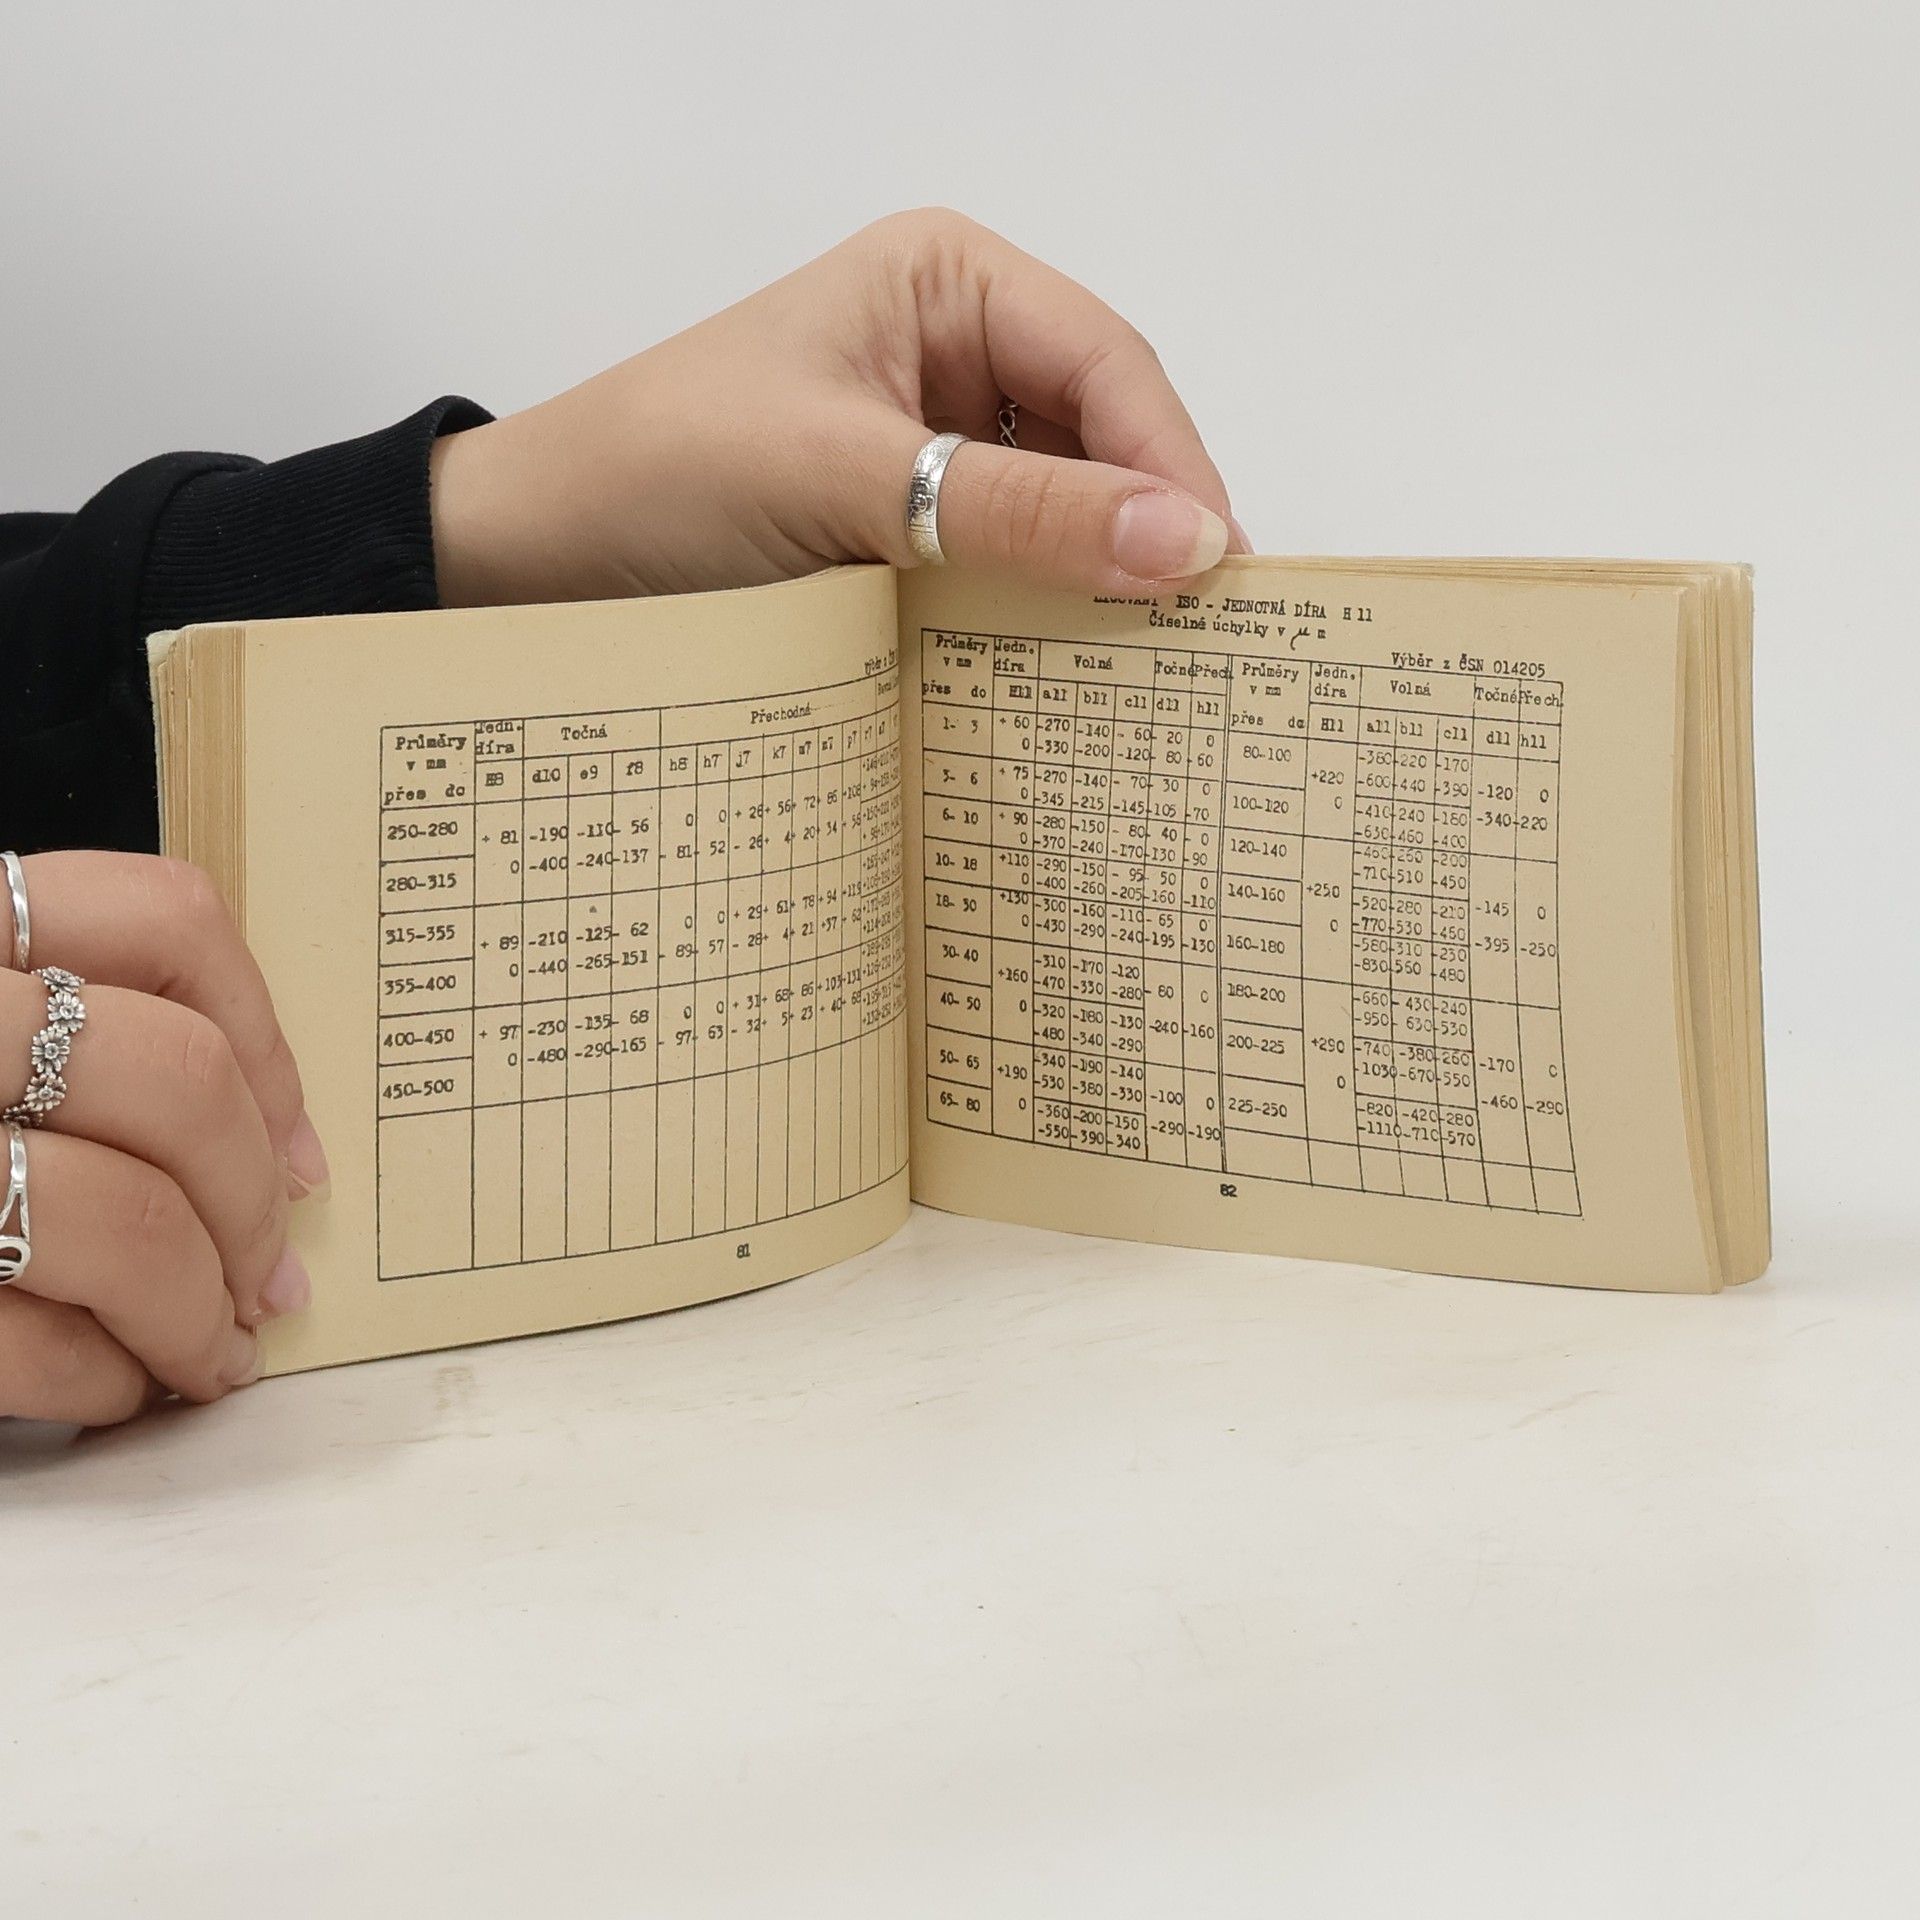 Výběr z
Průměry Jedn. Točná Přechodná
v mm díra
přes do H8 d10 e9 f8 h8 h7 j7 k7 m7 n7 p7 r7 s7
250-280 + 81 -190 -110 - 56 0 0 + 26 + 56 + 72 + 86 +108
280-315 0 -400 -240 -137 - 81 - 52 - 26 + 4 + 20 + 34 + 56
315-355 + 89 -210 -125 - 62 0 0 + 29 + 61 + 78 + 94 +119
355-400 0 -440 -265 -151 - 89 - 57 - 28 + 4 + 21 +37 + 62
400-450 + 97 -230 -135 - 68 0 0 + 31 + 68 + 86 +103 +131
450-500 0 -480 -290 -165 - 97 - 63 - 32 + 5 + 23 + 40 + 68
81
ISO - JEDNOTNÁ DÍRA H 11
Číselné úchylky v μ m
Výběr z ČSN 014205
Průměry Jedn. Volná Točné Přech.
v mm díra
přes do H11 a11 b11 c11 d11 h11
1- 3 + 60 -270 -140 - 60 - 20 0
0 -330 -200 -120 - 80 -60
3- 6 + 75 -270 -140 - 70 - 30 0
0 -345 -215 -145 -105 -70
6- 10 + 90 -280 -150 - 80 - 40 - 0
0 -370 -240 -170 -130 -90
10- 18 +110 -290 -150 - 95 - 50 0
0 -400 -260 -205 -160 -110
18- 30 +130 -300 -160 -110 - 65 0
0 -430 -290 -240 -195 -130
30-40 +160 -310 -170 -120 - 80 0
-470 -330 -280
40- 50 0 -320 -180 -130 -240 -160
-480 -340 -290
50- 65 +190 -340 -190 -140 -100 0
-530 -380 -330
65- 80 0 -360 -200 -150 -290 -190
-550 -390 -340
Průměry Jedn. Volná Točné Přech.
v mm díra
přes do H11 a11 b11 c11 d11 h11
80-100 +220 -380 -220 -170 -120 0
-600 -440 -390
100-120 0 -410 -240 -180 -340 -220
-630 -460 -400
120-140 -460 -260 -200
-710 -510 -450
140-160 +250 -520 -280 -210 -145 0
0 -770 -530 -460
160-180 -580 -310 -230 -395 -250
-830 -560 -480
180-200 -660 - 430 -240
-950 - 630 -530
200-225 +290 -740 -380 -260 -170 0
0 -1030 -670 -550
225-250 -820 -420 -280 -460 -290
-1110 -710 -570
82